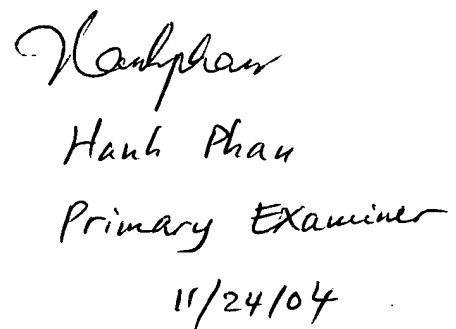 Hanhphan
Hanh Phan
Primary Examiner
11/24/04